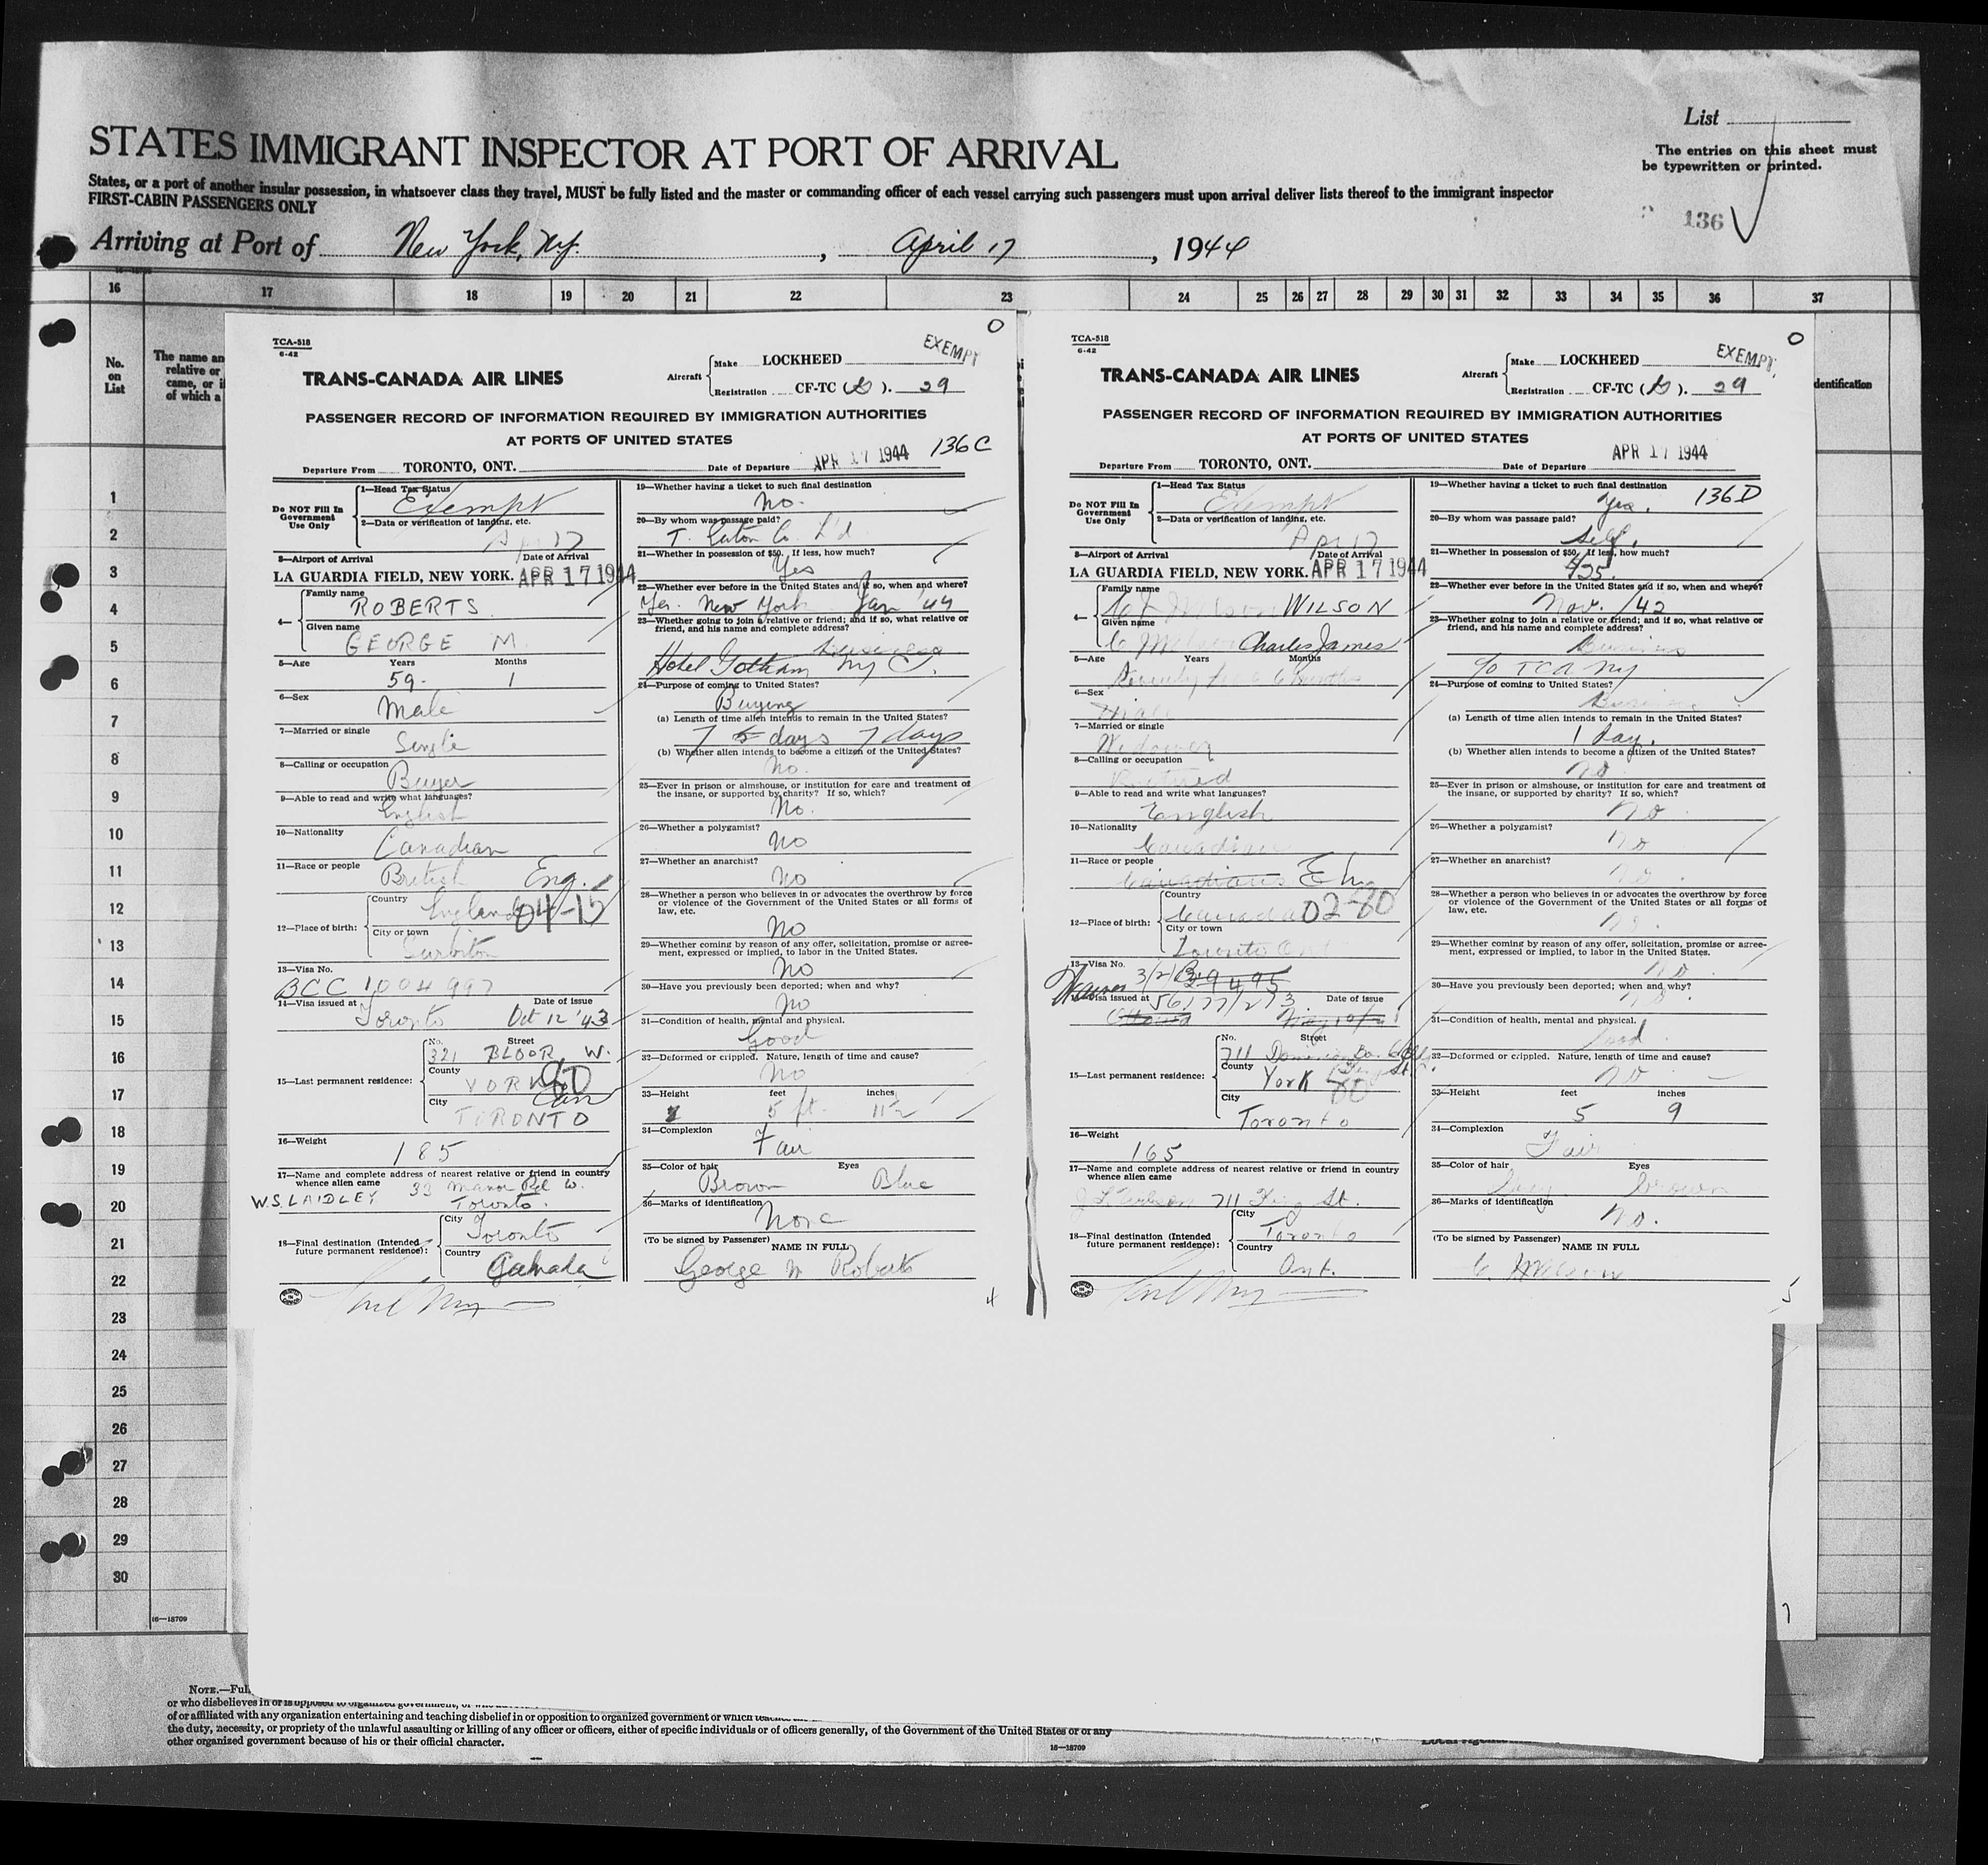 List
STATES IMMIGRANT INSPECTOR AT PORT OF ARRIVAL
The entries on this sheet must
be typewritten or printed.
States, or a port of another insular possession, in whatsoever class they travel, MUST be fully listed and the master or commanding officer of each vessel carrying such passengers must upon arrival deliver lists thereof to the immigrant inspector
FIRST-CABIN PASSENGERS ONLY
136
Arriving at Port of New York, Ny. , April 17 , 1944
16 17 18 19 20 21 22 23 24 25 26 27 28 29 30 31 32 33 34 35 36 37
No.
on
List
The name an
relative or
came, or i
of which a
dentification
1
2
3
4
5
6
7
8
9
10
11
12
13
14
15
16
17
18
19
20
21
22
23
24
25
26
27
28
29
30
16—18709
TCA-518
6-42
O
EXEMPT
TRANS-CANADA AIR LINES
Aircraft
Make LOCKHEED
Registration CF-TC ( ). 29
PASSENGER RECORD OF INFORMATION REQUIRED BY IMMIGRATION AUTHORITIES
AT PORTS OF UNITED STATES
136C
Departure From TORONTO, ONT. Date of Departure APR 17 1944
Do NOT Fill In
Government
Use Only
1—Head Tax Status
Exempt
2—Data or verification of landing, etc.
Ap 17
3—Airport of Arrival Date of Arrival
LA GUARDIA FIELD, NEW YORK. APR 17 1944
4—
Family name
ROBERTS
Given name
GEORGE M
5—Age Years Months
59 - 1
6—Sex
Male
7—Married or single
Single
8—Calling or occupation
Buyer
9—Able to read and write what languages?
English
10—Nationality
Canadian
11—Race or people
British Eng.
12—Place of birth:
Country
England 04-15
City or town
Surbiton
13—Visa No.
BCC 1004997
14—Visa issued at Date of issue
Toronto Oct 12 '43
15—Last permanent residence:
No. Street
321 BLOOR W.
County
YORK
City
TORONTO
16—Weight
185
17—Name and complete address of nearest relative or friend in country
whence alien came
W.S. LAIDLEY 33 Manor Rd W.
Toronto.
18—Final destination (Intended
future permanent residence):
City
Toronto
Country
Canada
19—Whether having a ticket to such final destination
No.
20—By whom was passage paid?
T. Eaton Co. L'd
21—Whether in possession of $50. If less, how much?
Yes
22—Whether ever before in the United States and if so, when and where?
Yes. New York Jan '44
23—Whether going to join a relative or friend; and if so, what relative or
friend, and his name and complete address?
business
Hotel Gotham NY C.
24—Purpose of coming to United States?
Buying
(a) Length of time alien intends to remain in the United States?
7 5 days 7 days
(b) Whether alien intends to become a citizen of the United States?
No.
25—Ever in prison or almshouse, or institution for care and treatment of
the insane, or supported by charity? If so, which?
No.
26—Whether a polygamist?
No
27—Whether an anarchist?
No
28—Whether a person who believes in or advocates the overthrow by force
or violence of the Government of the United States or all forms of
law, etc.
No
29—Whether coming by reason of any offer, solicitation, promise or agree-
ment, expressed or implied, to labor in the United States.
No
30—Have you previously been deported; when and why?
No
31—Condition of health, mental and physical.
Good
32—Deformed or crippled. Nature, length of time and cause?
No
33—Height feet inches
5 ft. 11½
34—Complexion
Fair
35—Color of hair Eyes
Brown Blue
36—Marks of identification
None
(To be signed by Passenger) NAME IN FULL
George M Roberts
4
TCA-518
6-42
O
EXEMPT
TRANS-CANADA AIR LINES
Aircraft
Make LOCKHEED
Registration CF-TC ( ). 29
PASSENGER RECORD OF INFORMATION REQUIRED BY IMMIGRATION AUTHORITIES
AT PORTS OF UNITED STATES
Departure From TORONTO, ONT. Date of Departure APR 17 1944
136D
Do NOT Fill In
Government
Use Only
1—Head Tax Status
Exempt
2—Data or verification of landing, etc.
Ap 17
3—Airport of Arrival Date of Arrival
LA GUARDIA FIELD, NEW YORK. APR 17 1944
4—
Family name
WILSON
Given name
Charles James
5—Age Years Months
6—Sex
Male
7—Married or single
Widower
8—Calling or occupation
Retired
9—Able to read and write what languages?
English
10—Nationality
Canadian
11—Race or people
Canadian
12—Place of birth:
Country
Canada 02-80
City or town
Toronto Ont
13—Visa No.
Waiver 3/2/ 39495
14—Visa issued at Date of issue
Ottawa
15—Last permanent residence:
No. Street
711
County
York 80
City
Toronto
16—Weight
165
17—Name and complete address of nearest relative or friend in country
whence alien came
Wilson 711 King St.
18—Final destination (Intended
future permanent residence):
City
Toronto
Country
Ont.
19—Whether having a ticket to such final destination
Yes.
20—By whom was passage paid?
Self.
21—Whether in possession of $50. If less, how much?
22—Whether ever before in the United States and if so, when and where?
Nov. /42
23—Whether going to join a relative or friend; and if so, what relative or
friend, and his name and complete address?
Business
c/o TCA NY
24—Purpose of coming to United States?
Business
(a) Length of time alien intends to remain in the United States?
1 day.
(b) Whether alien intends to become a citizen of the United States?
No
25—Ever in prison or almshouse, or institution for care and treatment of
the insane, or supported by charity? If so, which?
No
26—Whether a polygamist?
No
27—Whether an anarchist?
No.
28—Whether a person who believes in or advocates the overthrow by force
or violence of the Government of the United States or all forms of
law, etc.
No.
29—Whether coming by reason of any offer, solicitation, promise or agree-
ment, expressed or implied, to labor in the United States.
No
30—Have you previously been deported; when and why?
No
31—Condition of health, mental and physical.
Good
32—Deformed or crippled. Nature, length of time and cause?
No
33—Height feet inches
5 9
34—Complexion
Fair
35—Color of hair Eyes
Grey Brown
36—Marks of identification
No.
(To be signed by Passenger) NAME IN FULL
C. Wilson
5
7
NOTE.—Ful
or who disbelieves in or is opposed to organized government,
of or affiliated with any organization entertaining and teaching disbelief in or opposition to organized government or which
the duty, necessity, or propriety of the unlawful assaulting or killing of any officer or officers, either of specific individuals or of officers generally, of the Government of the United States or of any
other organized government because of his or their official character.
16—18709